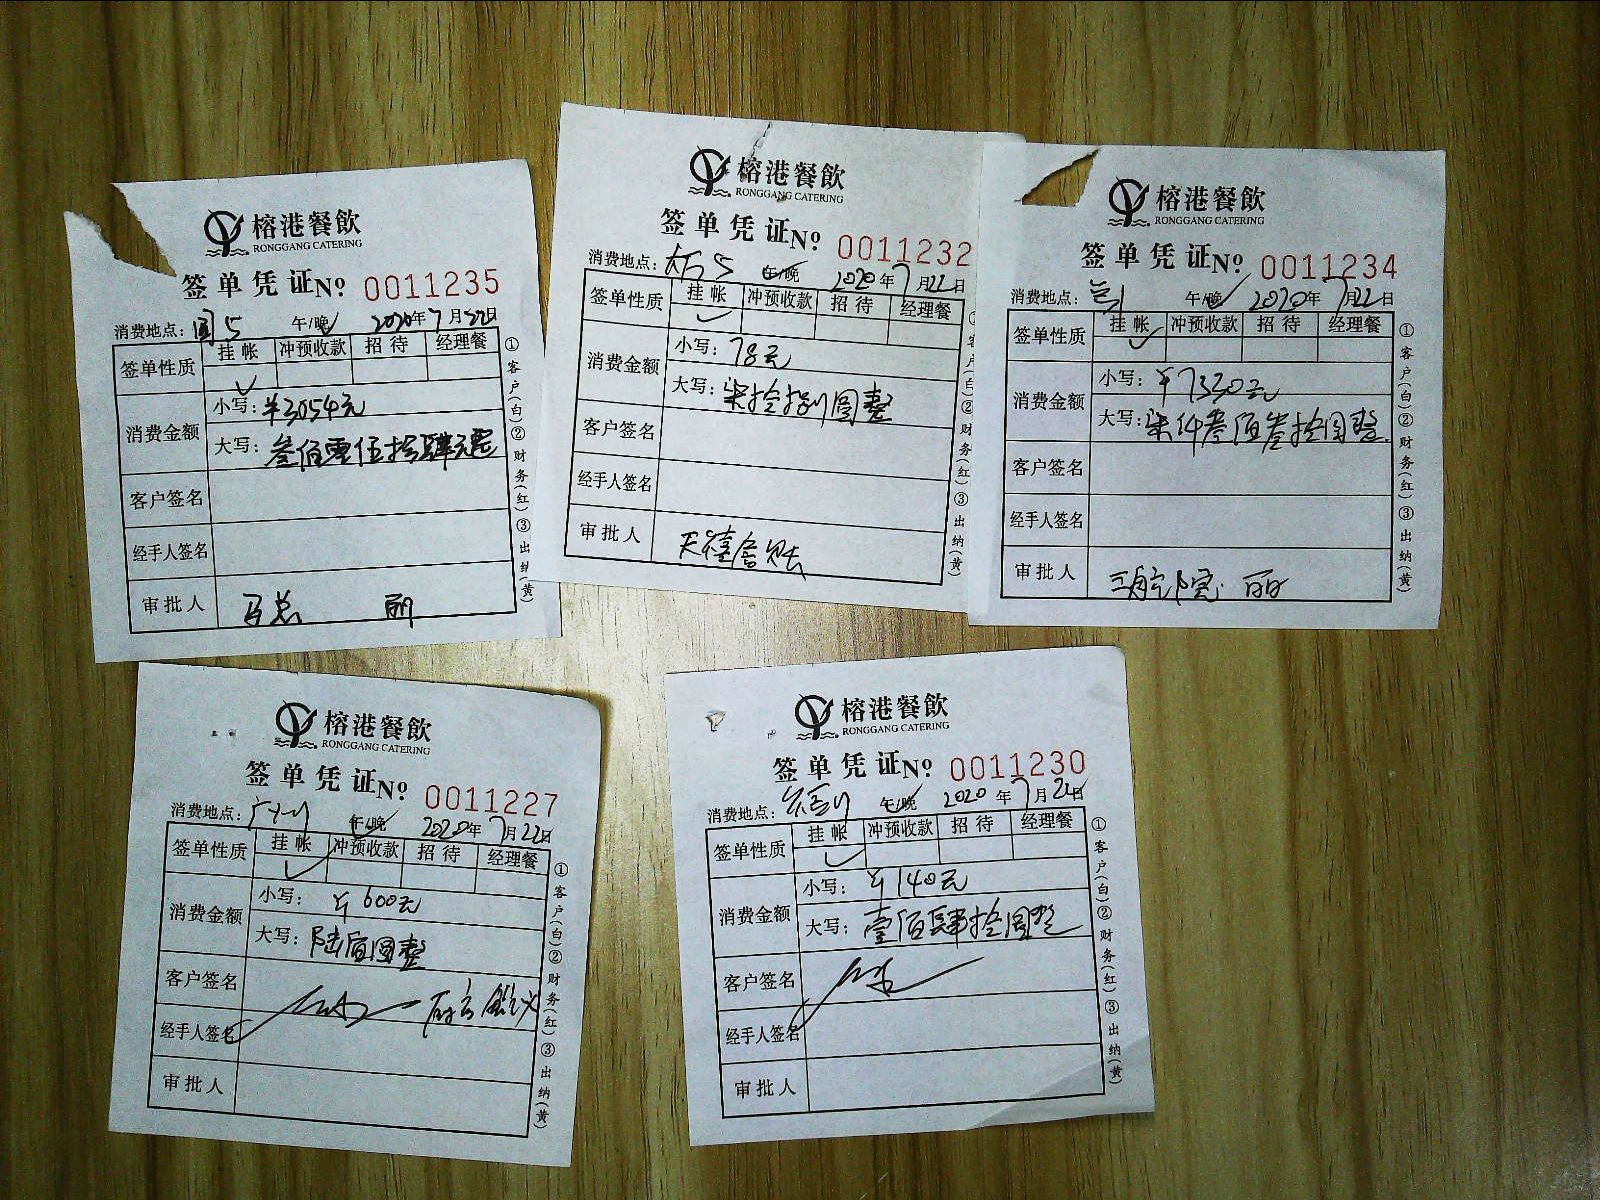 榕港餐飲
RONGGANG CATERING
签单凭证 No 0011235
消费地点: 5 午/晚 2020年7月22日
签单性质 挂帐 冲预收款 招待 经理餐
消费金额
小写: ¥3054元
大写: 叁佰零伍拾肆元整
客户签名
经手人签名
审批人
①客户(白)②财务(红)③出纳(黄)
榕港餐飲
RONGGANG CATERING
签单凭证 No 0011232
消费地点: 5 午/晚 2020年7月22日
签单性质 挂帐 冲预收款 招待 经理餐
消费金额
小写: 78元
大写: 柒拾捌圆整
客户签名
经手人签名
审批人
①客户(白)②财务(红)③出纳(黄)
榕港餐飲
RONGGANG CATERING
签单凭证 No 0011234
消费地点: 午/晚 2020年7月22日
签单性质 挂帐 冲预收款 招待 经理餐
消费金额
小写: ¥7330元
大写: 柒仟叁佰叁拾圆整
客户签名
经手人签名
审批人 丽
①客户(白)②财务(红)③出纳(黄)
榕港餐飲
RONGGANG CATERING
签单凭证 No 0011227
消费地点: 午/晚 2020年7月22日
签单性质 挂帐 冲预收款 招待 经理餐
消费金额
小写: ¥600元
大写: 陆佰圆整
客户签名
经手人签名
审批人
①客户(白)②财务(红)③出纳(黄)
榕港餐飲
RONGGANG CATERING
签单凭证 No 0011230
消费地点: 午/晚 2020年7月22日
签单性质 挂帐 冲预收款 招待 经理餐
消费金额
小写: ¥140元
大写: 壹佰肆拾圆整
客户签名
经手人签名
审批人
①客户(白)②财务(红)③出纳(黄)